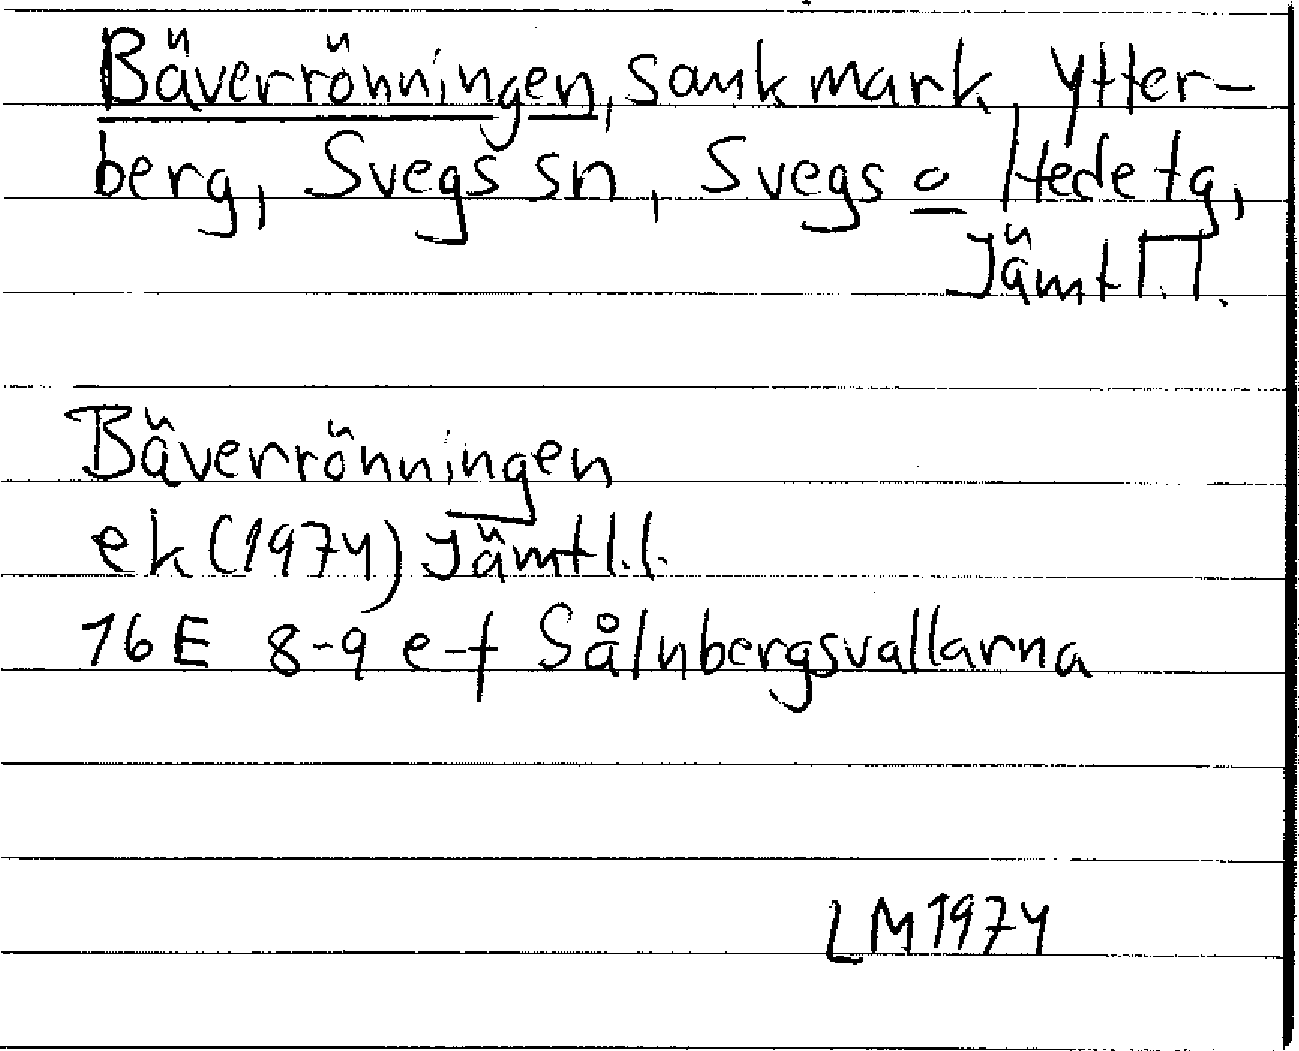 Bäverrönningen, sank mark, Ytter-
berg, Svegs sn, Svegs o Hede tg,
Jämtl.l.
Bäverrönningen
ek (1974) Jämtl.l.
16E 8-9 e-f Sålnbergsvallarna
LM 1974